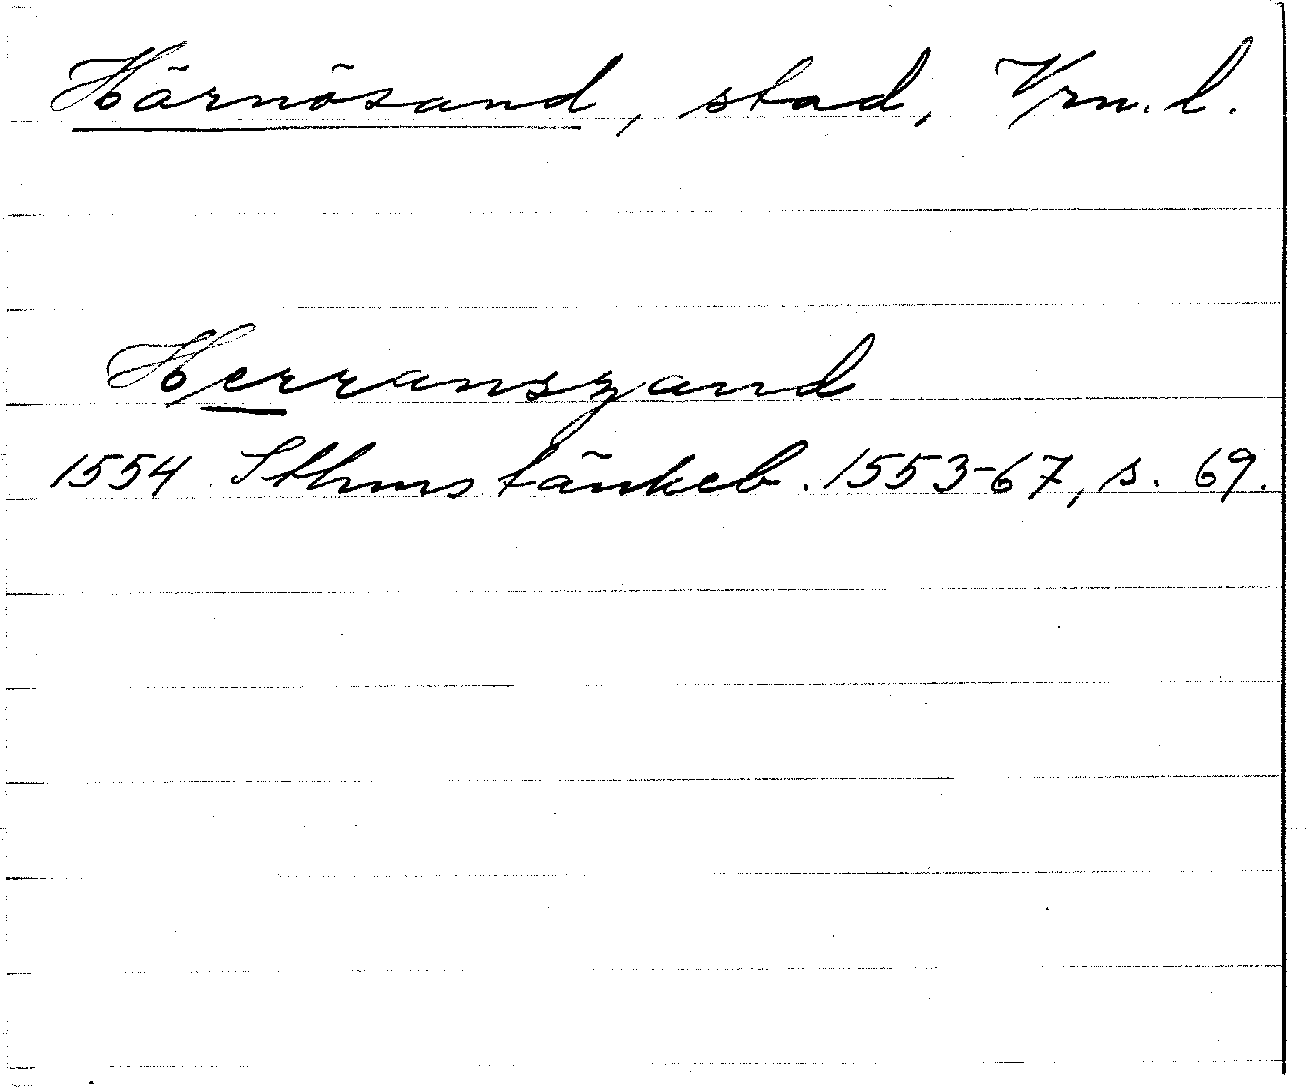 Härnösand, stad, Vrn. l.
Herranszand
1554 Sthms tänkeb. 1553-67, s. 69.